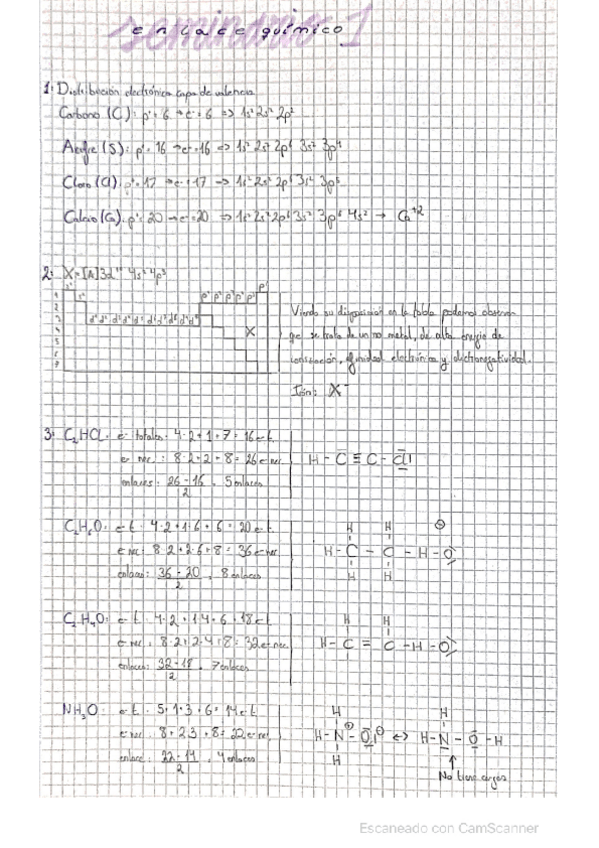 seminario 1
enlace químico
1: Distribución electrónica capa de valencia
Carbono (C): p⁺ = 6 → e⁻ = 6 => 1s² 2s² 2p²
Azufre (S): p⁺ = 16 → e⁻ = 16 => 1s² 2s² 2p⁶ 3s² 3p⁴
Cloro (Cl): p⁺ = 17 → e⁻ = 17 => 1s² 2s² 2p⁶ 3s² 3p⁵
Calcio (Ca): p⁺ = 20 → e⁻ = 20 => 1s² 2s² 2p⁶ 3s² 3p⁶ 4s² → Ca⁺²
2: X = [Ar] 3d¹⁰ 4s² 4p³
X
Viendo su disposición en la tabla podemos observar
que se trata de un no metal, de alta energía de
ionización, afinidad electrónica y electronegatividad.
Ión: X⁻
3: C₂HCl: e⁻ totales: 4·2+1+7 = 16 e⁻ t.
e⁻ nec: 8·2+2+8 = 26 e⁻ nec
enlaces: 26-16/2 = 5 enlaces
H - C ≡ C - Cl
C₂H₆O: e⁻ t: 4·2+1·6+6 = 20 e⁻ t.
e⁻ nec: 8·2+2·6+8 = 36 e⁻ nec
enlaces: 36-20/2 = 8 enlaces
H H
H - C - C - H - O
H H
C₂H₄O: e⁻ t: 4·2+1·4+6 = 18 e⁻ t.
e⁻ nec: 8·2+2·4+8 = 32 e⁻ nec.
enlaces: 32-18/2 = 7 enlaces
H H
H - C = C - H - O
NH₃O: e⁻ t: 5+1·3+6 = 14 e⁻ t
e⁻ nec: 8+2·3+8 = 22 e⁻ nec.
enlace: 22-14/2 = 4 enlaces
H H
H - N - O ↔ H - N - O - H
H
No tiene cargas
Escaneado con CamScanner